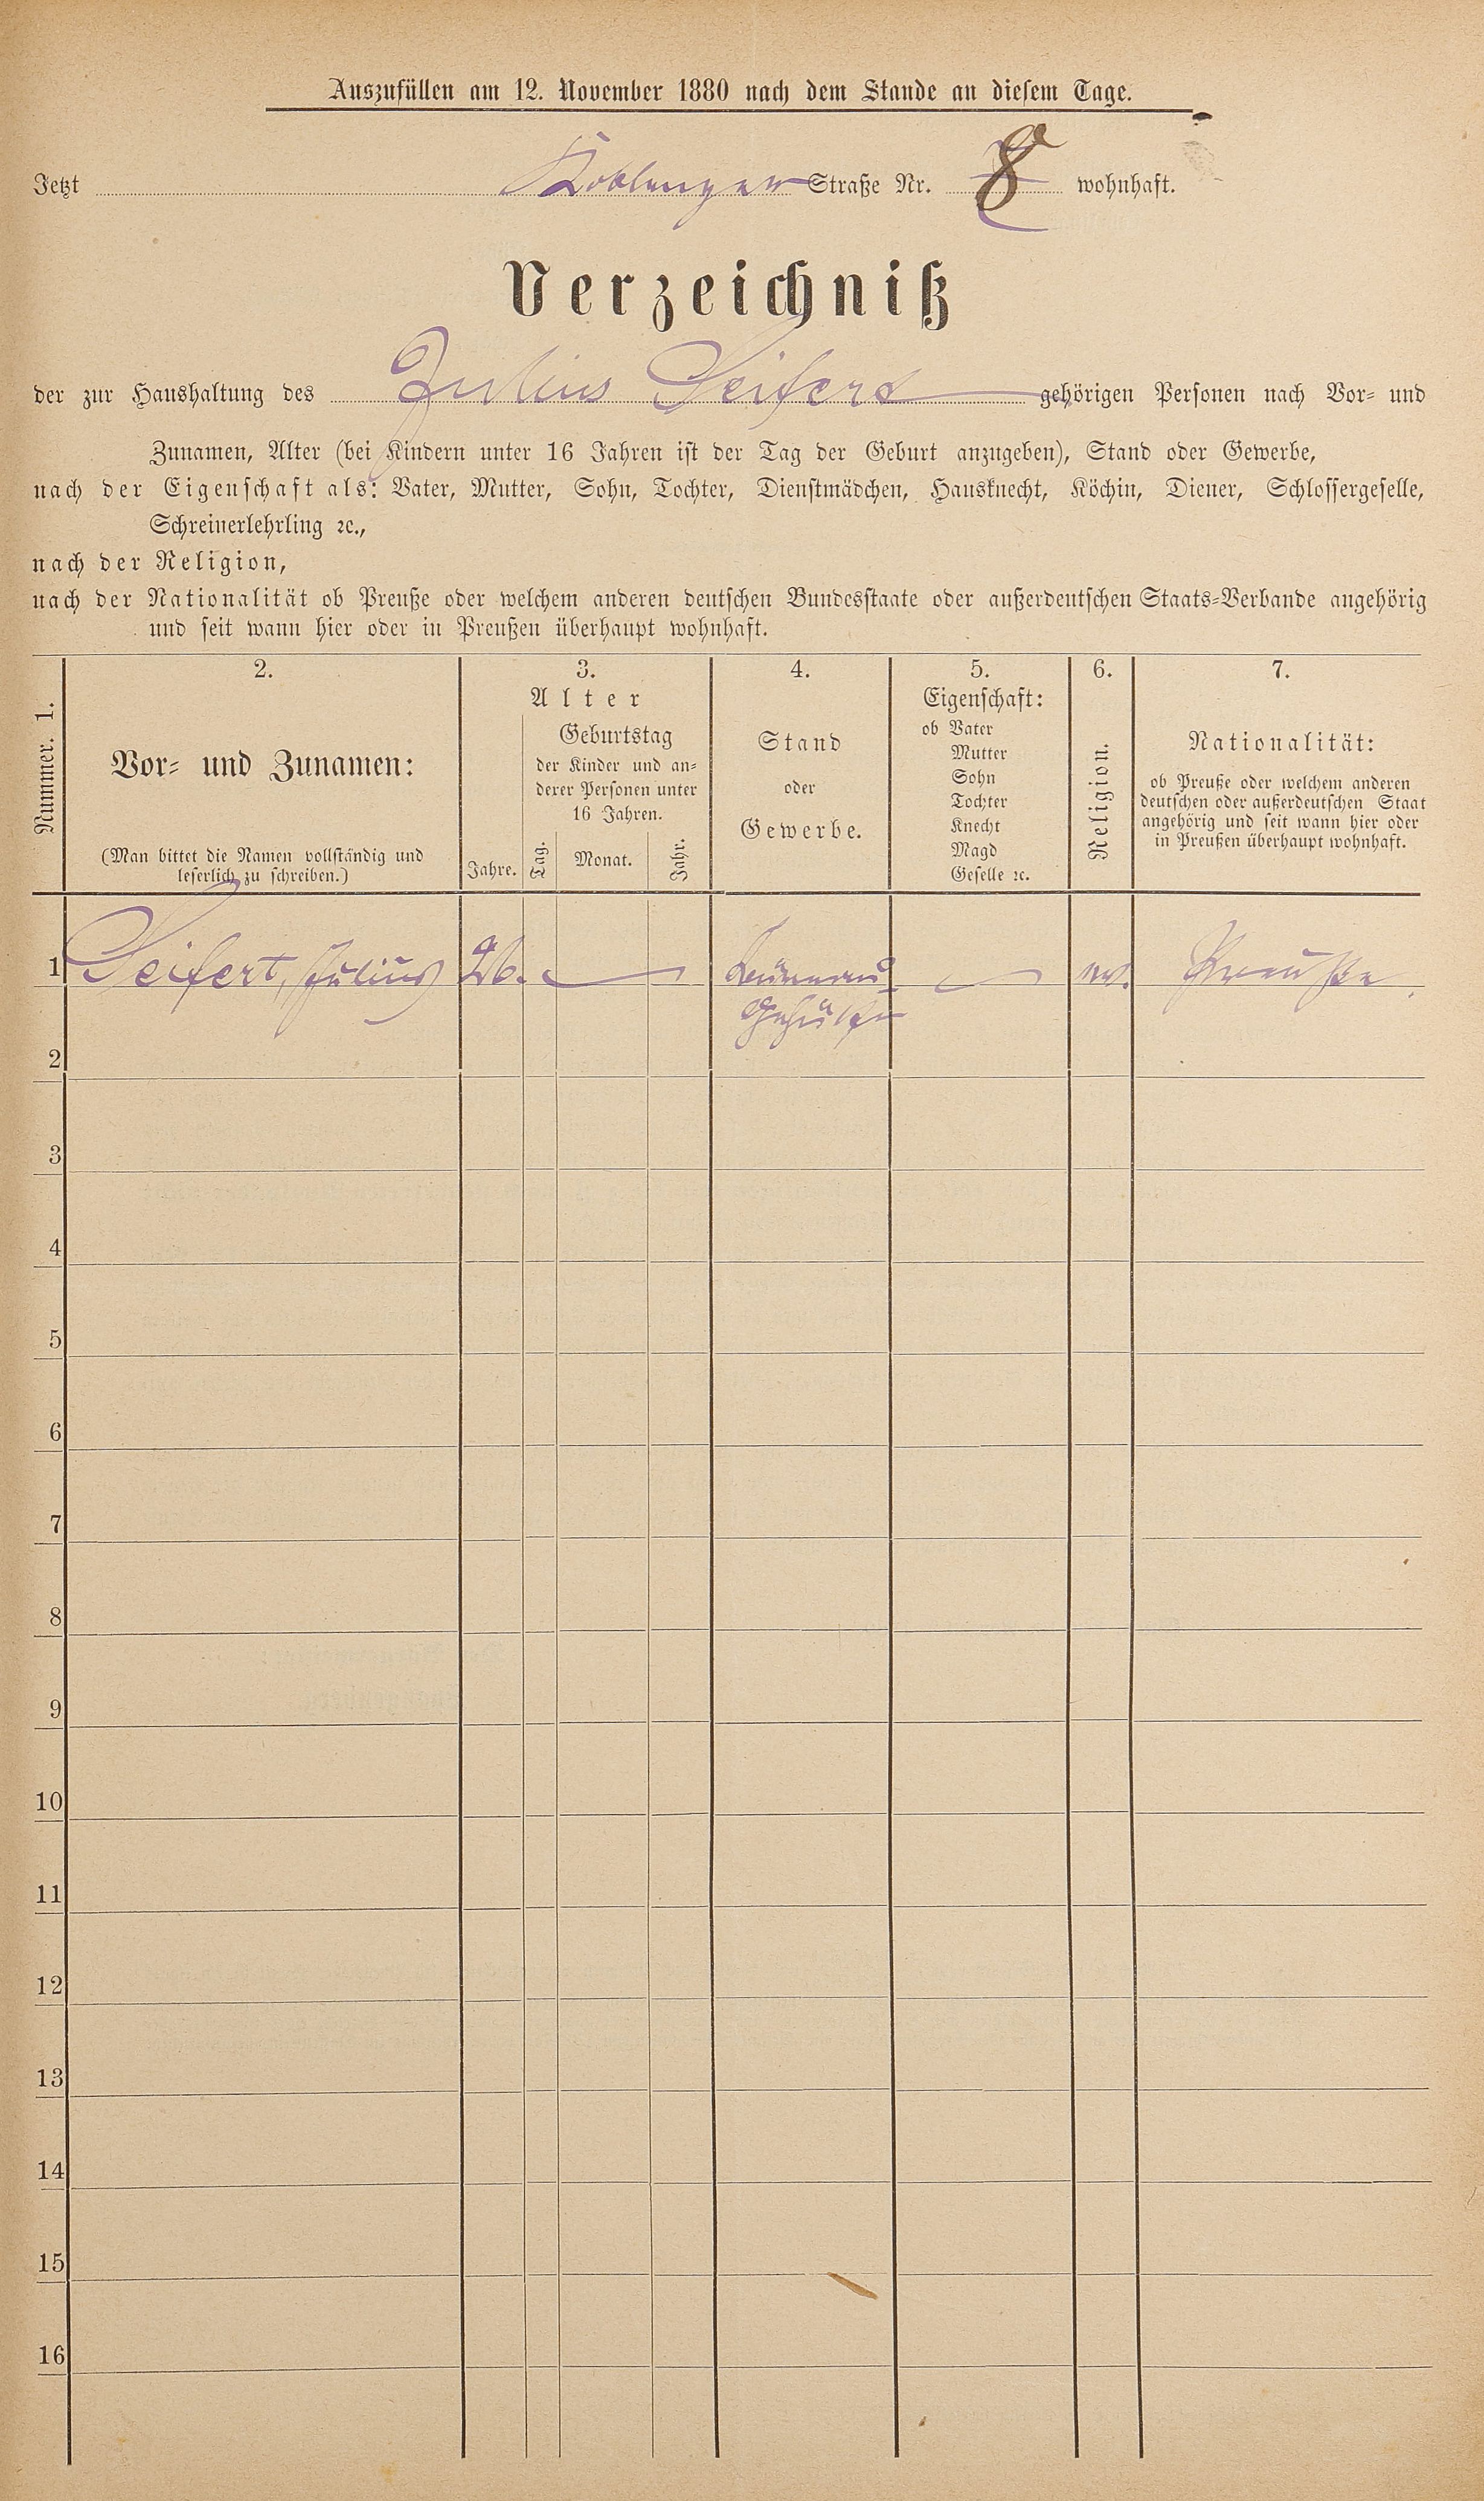 Auszufüllen am 12. November 1880 nach dem Stande an diesem Tage.
Jetzt Koblenzer Straße Nr. 8 wohnhaft.
Verzeichniß
der zur Haushaltung des Julius Seifert gehörigen Personen nach Vor- und
Zunamen, Alter (bei Kindern unter 16 Jahren ist der Tag der Geburt anzugeben), Stand oder Gewerbe,
nach der Eigenschaft als: Vater, Mutter, Sohn, Tochter, Dienstmädchen, Hausknecht, Köchin, Diener, Schlossergeselle,
Schreinerlehrling ꝛc.,
nach der Religion,
nach der Nationalität ob Preuße oder welchem anderen deutschen Bundesstaate oder außerdeutschen Staats-Verbande angehörig
und seit wann hier oder in Preußen überhaupt wohnhaft.
Nummer. 1.
2.
Vor- und Zunamen:
(Man bittet die Namen vollständig und
leserlich zu schreiben.)
3.
Alter
Jahre.
Geburtstag
der Kinder und an-
derer Personen unter
16 Jahren.
Tag.
Monat.
Jahr.
4.
Stand
oder
Gewerbe.
5.
Eigenschaft:
ob Vater
Mutter
Sohn
Tochter
Knecht
Magd
Geselle ꝛc.
6.
Religion.
7.
Nationalität:
ob Preuße oder welchem anderen
deutschen oder außerdeutschen Staat
angehörig und seit wann hier oder
in Preußen überhaupt wohnhaft.
1 Seifert, Julius 26. ev. Preuße
Gehülfe
2
3
4
5
6
7
8
9
10
11
12
13
14
15
16